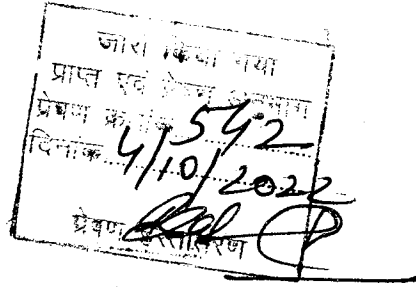 जारी किया गया
प्राप्त एवं प्रेषण अनुभाग
प्रेषण क्रमांक 542
दिनांक 4/10/2022
प्रेषण हस्ताक्षरण